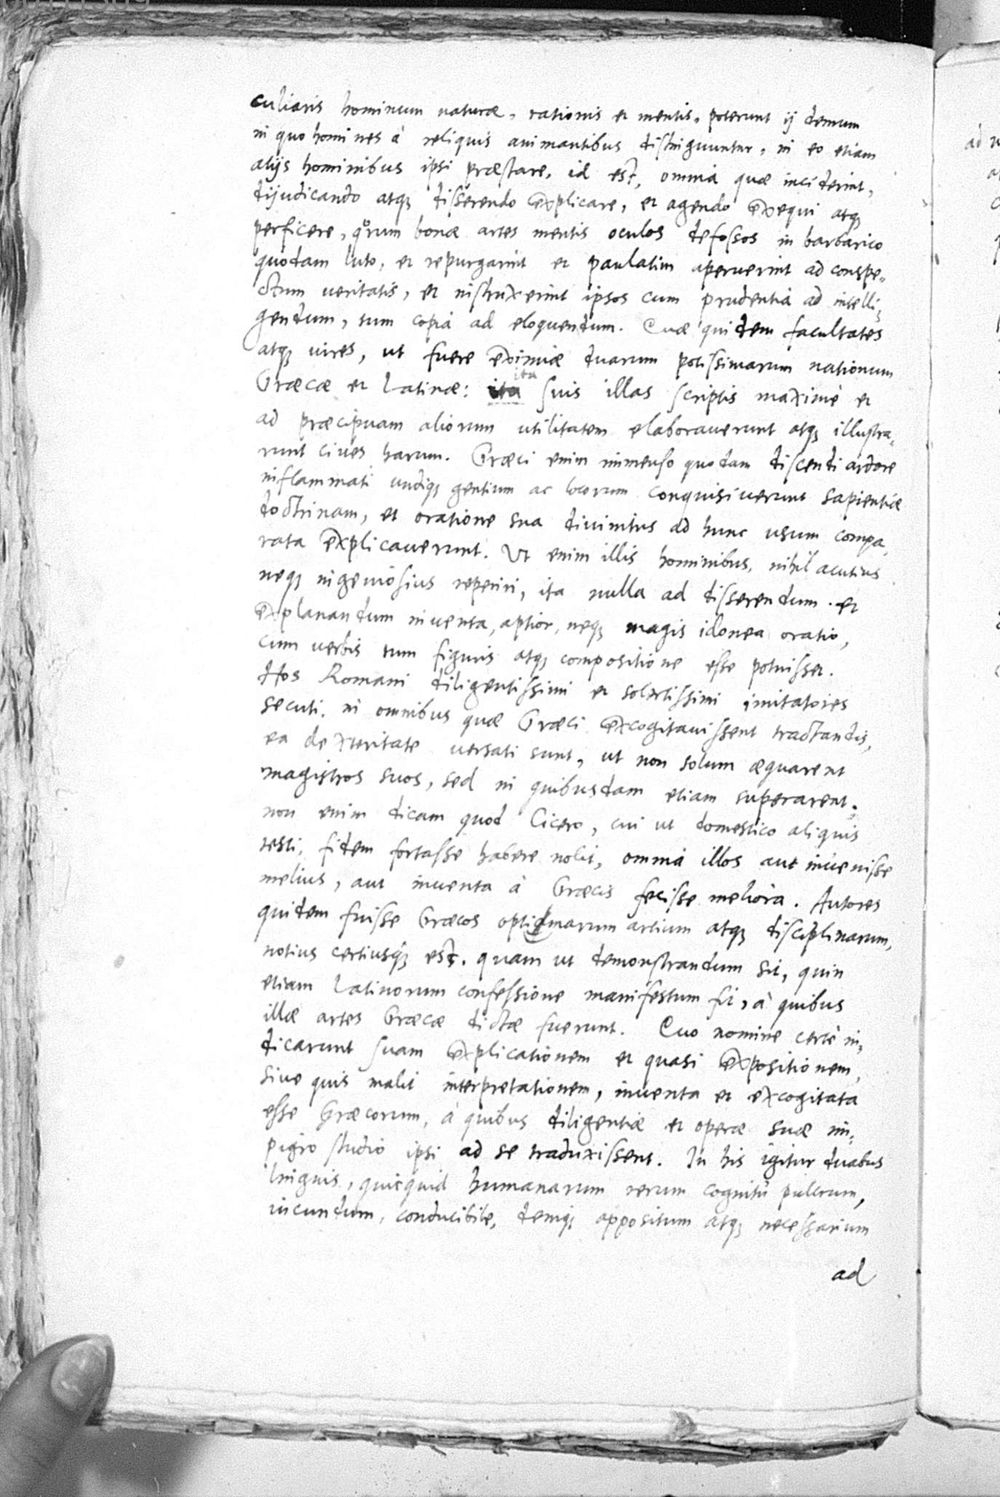 culiaris hominum naturæ, rationis et mentis, poterunt ij demum
in quo homines à reliquis animantibus distinguuntur, in eo etiam
alijs hominibus ipsi præstare, id est, omnia quæ inciderint,
dijudicando atq; disserendo explicare, et agendo exequi atq;
perficere, quorum bonæ artes mentis oculos defossos in barbarico
quodam luto, et repurgarint et paulatim aperuerint ad conspe-
ctum veritatis, et instruxerint ipsos cum prudentia ad intelli-
gendum, tum copia ad eloquendum. Quæ quidem facultates
atq; vires, ut fuere eximiæ duarum potissimarum nationum
Græcæ et Latinæ: ita suis illas scriptis maximè et
ad præcipuam aliorum utilitatem elaborauerunt atq; illustra-
runt cives harum. Græci enim immenso quodam discendi ardore
inflammati undiq; gentium ac locorum conquisiverunt sapientiæ
doctrinam, et oratione sua divinitus ad hunc usum compa-
rata explicauerunt. Ut enim illis hominibus, nihil acutius
neq; ingeniosius reperiri, ita nulla ad disserendum et
explanandum inventa, aptior, neq; magis idonea oratio,
cum verbis tum figuris atq; compositione esse potuisset.
Hos Romani diligentissimi et solertissimi imitatores
secuti, in omnibus quæ Græci excogitauissent tractandis,
ea dexteritate versati sunt, ut non solum æquarent
magistros suos, sed in quibusdam etiam superarent.
non enim dicam quod Cicero, cui ut domestico aliquis
testi, fidem fortasse habere nolit, omnia illos aut invenisse
melius, aut inventa à Græcis fecisse meliora. Autores
quidem fuisse Græcos optimarum artium atq; disciplinarum,
notius certiusq; est, quam ut demonstrandum sit, quin
etiam Latinorum confessione manifestum fit, à quibus
illæ artes Græcæ dictæ fuerunt. Quo nomine certè in-
dicarunt suam explicationem et quasi expositionem,
sive quis malit interpretationem, inventa et excogitata
esse Græcorum, à quibus diligentiæ et operæ suæ im-
pigro studio ipsi ad se traduxissent. In his igitur duabus
linguis, quicquid humanarum rerum cognitu pulcrum,
iucundum, conducibile, deniq; appositum atq; necessarium
ad